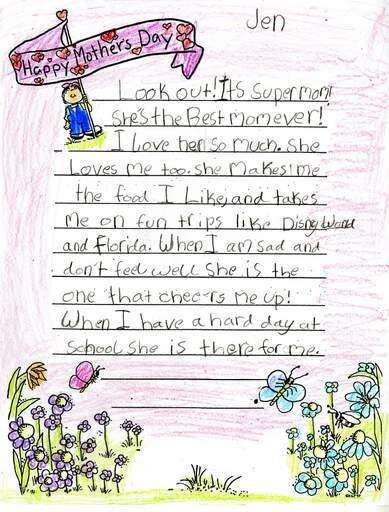 Jen
Happy Mother's Day
Look out! Its Super mom!
She's the Best mom ever!
I love her so much. She
Loves me too. she makes me
the food I Like, and takes
me on fun trips like Disny World
and florida. When I am sad and
don't feel well she is the
one that cheers me up!
When I have a hard day at
school she is there for me.